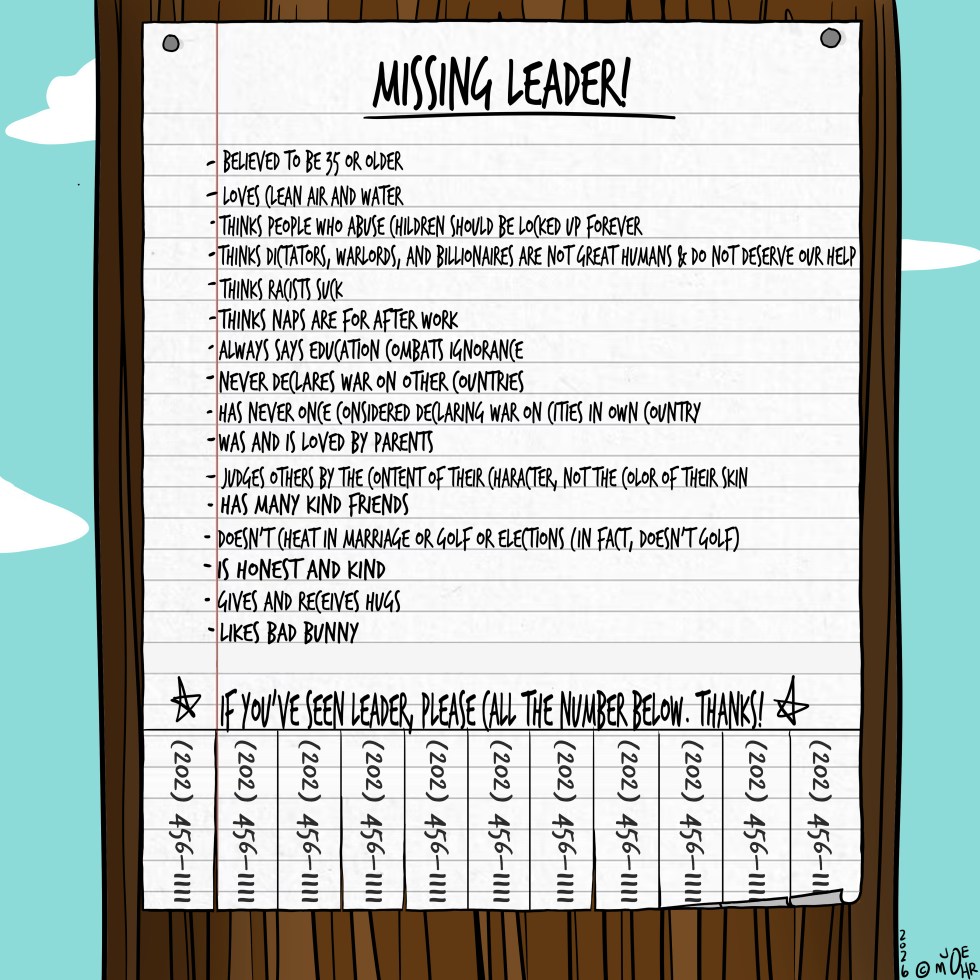 MISSING LEADER!
- BELIEVED TO BE 35 OR OLDER
- LOVES CLEAN AIR AND WATER
- THINKS PEOPLE WHO ABUSE CHILDREN SHOULD BE LOCKED UP FOREVER
- THINKS DICTATORS, WARLORDS, AND BILLIONAIRES ARE NOT GREAT HUMANS & DO NOT DESERVE OUR HELP
- THINKS RACISTS SUCK
- THINKS NAPS ARE FOR AFTER WORK
- ALWAYS SAYS EDUCATION COMBATS IGNORANCE
- NEVER DECLARES WAR ON OTHER COUNTRIES
- HAS NEVER ONCE CONSIDERED DECLARING WAR ON CITIES IN OWN COUNTRY
- WAS AND IS LOVED BY PARENTS
- JUDGES OTHERS BY THE CONTENT OF THEIR CHARACTER, NOT THE COLOR OF THEIR SKIN
- HAS MANY KIND FRIENDS
- DOESN'T CHEAT IN MARRIAGE OR GOLF OR ELECTIONS (IN FACT, DOESN'T GOLF)
- IS HONEST AND KIND
- GIVES AND RECEIVES HUGS
- LIKES BAD BUNNY
IF YOU'VE SEEN LEADER, PLEASE CALL THE NUMBER BELOW. THANKS!
(202) 456-1111
(202) 456-1111
(202) 456-1111
(202) 456-1111
(202) 456-1111
(202) 456-1111
(202) 456-1111
(202) 456-1111
(202) 456-1111
(202) 456-1111
(202) 456-1111
2026 © JOE MOHR